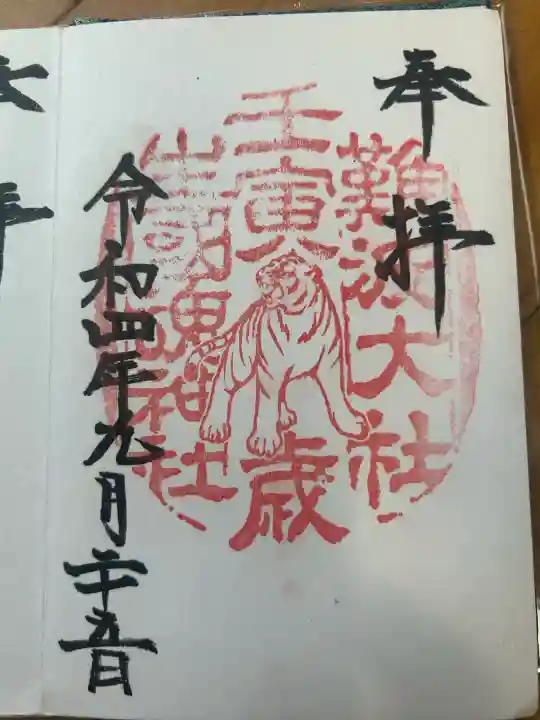 奉拝
難波大社
壬寅歳
生國魂神社
令和四年九月二十五日